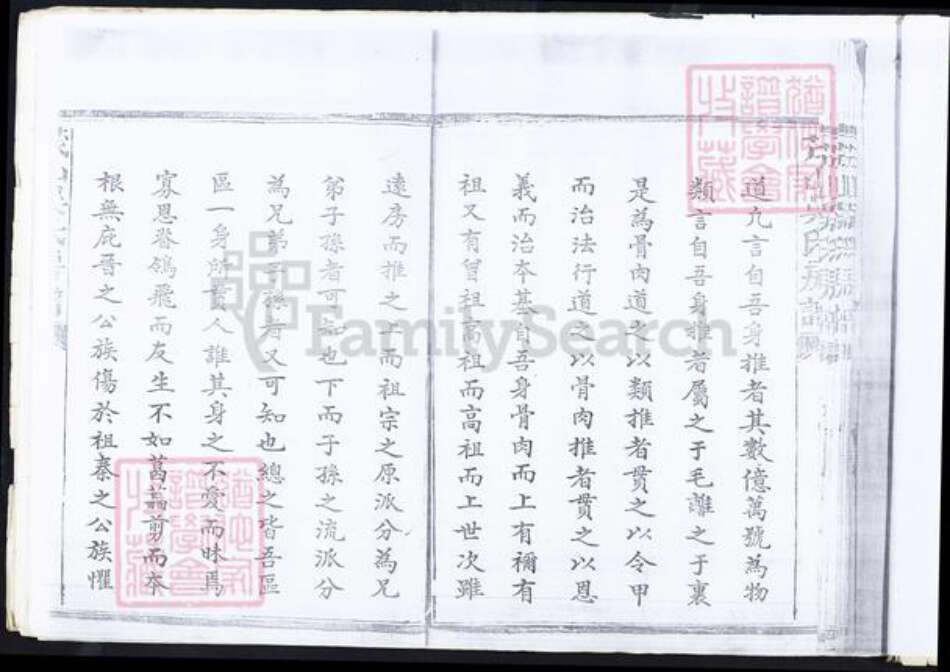 道凡言自吾身推者其數億萬號為物
類言自吾身推者屬之于毛離之于裏
是為骨肉道之以類推者貫之以令甲
而治法行道之以骨肉推者貫之以恩
義而治本基自吾身骨肉而上有禰有
祖又有曾祖高祖而高祖而上世次雖
遠房而推之于而祖宗之原派分為兄
弟子孫者可知也下而子孫之流派分
為兄弟子孫者又可知也總之皆吾區
區一身所貫人誰其身之不愛而昧焉
寡恩脊鴒飛而友生不如葛藟剪而本
根無庇晉之公族傷於祖秦之公族懼
FamilySearch